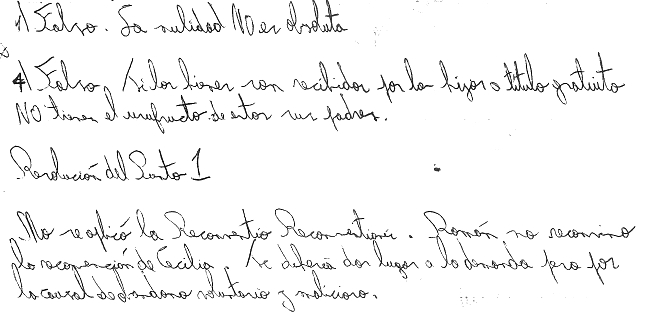 1) Falso. La nulidad NO es absoluta
4) Falso, Si los bienes son recibidos por los hijos a título gratuito
NO tienen el usufructo de estos sus padres.
Resolución del Punto 1
No se aplicó la Reconventio Reconventionis. Román no reconvino
la reconvención de Cecilia. Se debería dar lugar a la demanda pero por
la causal de abandono voluntario y malicioso.